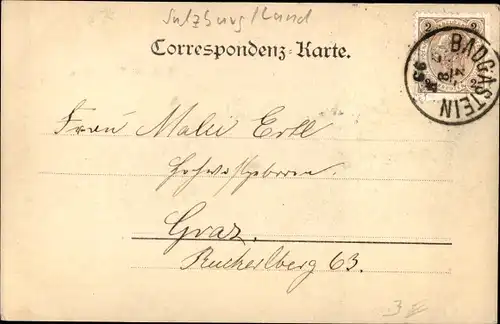 Salzburg/Land
Correspondenz-Karte.
2 2
BADGASTEIN
Frau Malie Ertl
Hochwohlgeboren.
Graz.
Ruckerlberg 63.
3